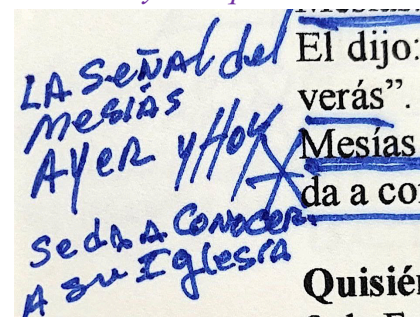 LA SEÑAL del
MESIÁS
AYER y HOY
Se da A CONOCER.
A su Iglesia
El dijo:
verás”.
Mesías
da a co
Quisiér